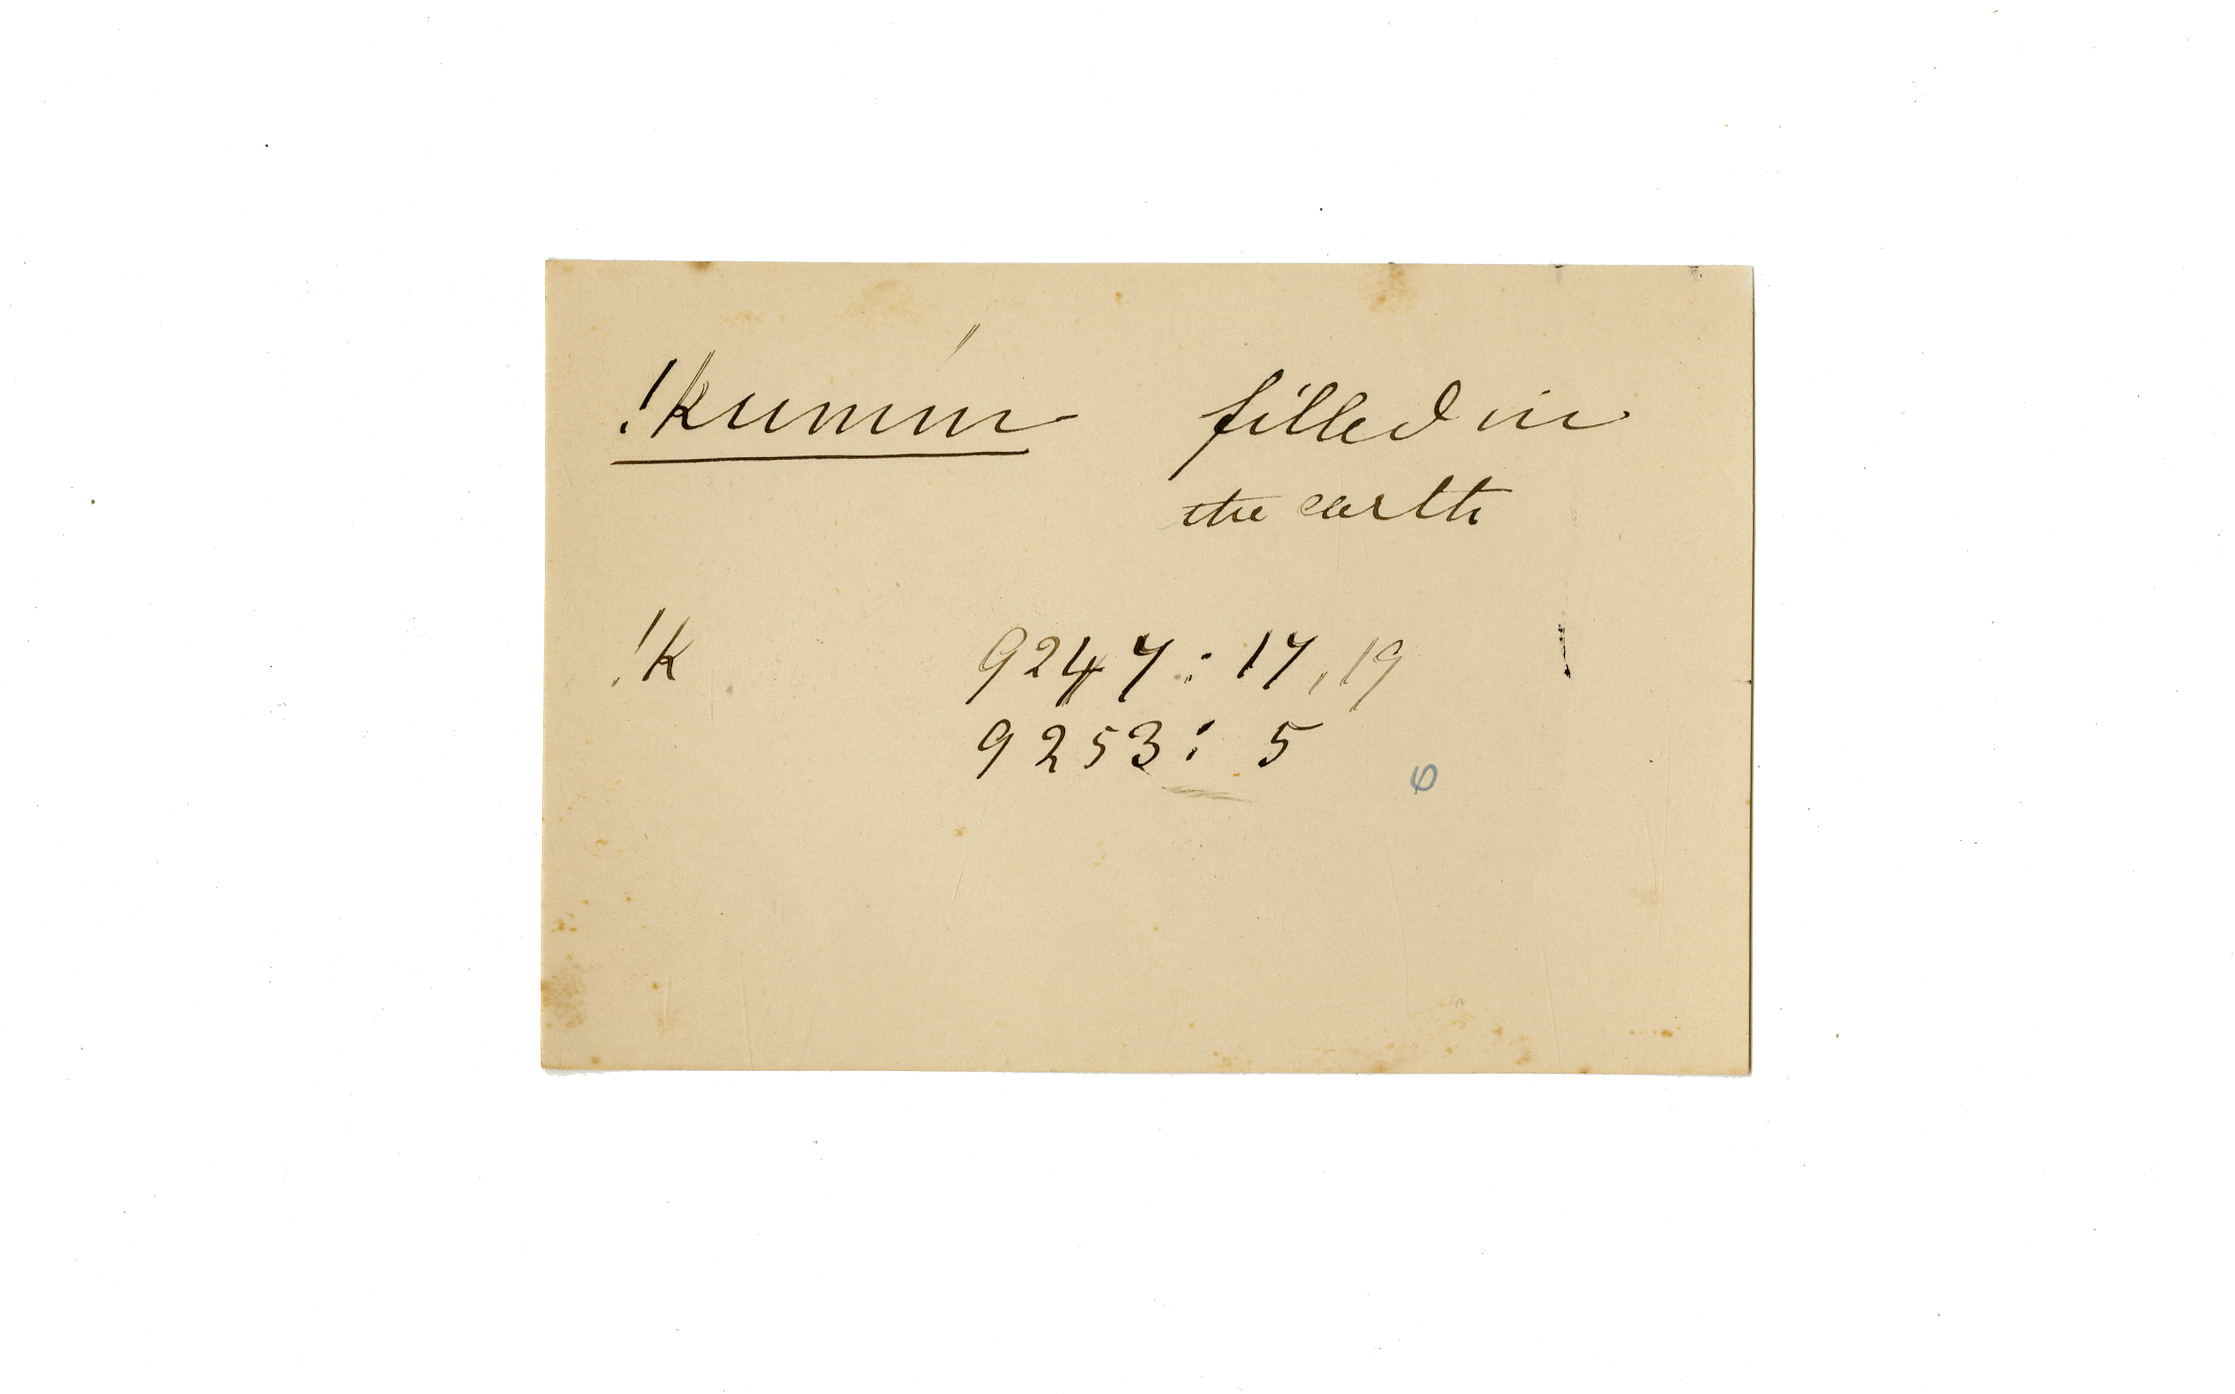 !kummín filled in
the earth
!k 9247 : 17, 19
9253 : 5